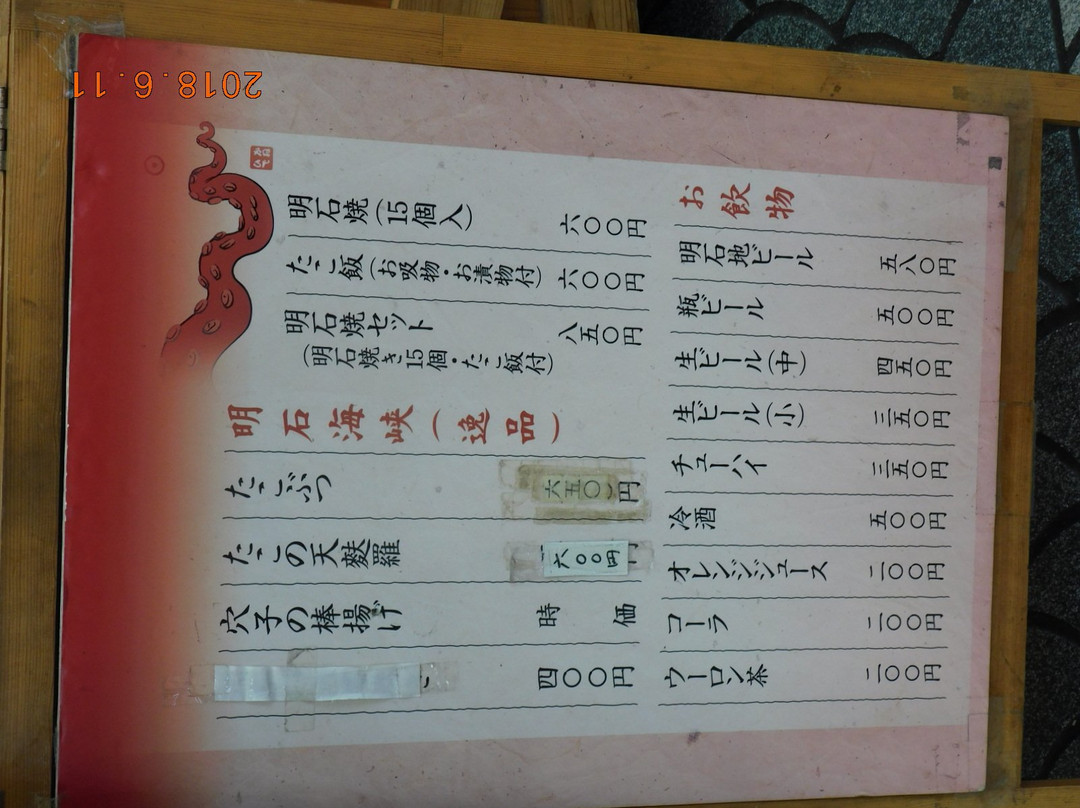 明石焼(15個入) 六〇〇円
たこ飯(お吸物・お漬物付) 六〇〇円
明石焼セット 八五〇円
(明石焼き15個・たこ飯付)
明石海峡(逸品)
たこぶつ 六五〇円
たこの天麩羅 六〇〇円
穴子の棒揚げ 時価
四〇〇円
お飲物
明石地ビール 五八〇円
瓶ビール 五〇〇円
生ビール(中) 四五〇円
生ビール(小) 三五〇円
チューハイ 三五〇円
冷酒 五〇〇円
オレンジジュース 二〇〇円
コーラ 二〇〇円
ウーロン茶 二〇〇円
2018.6.11